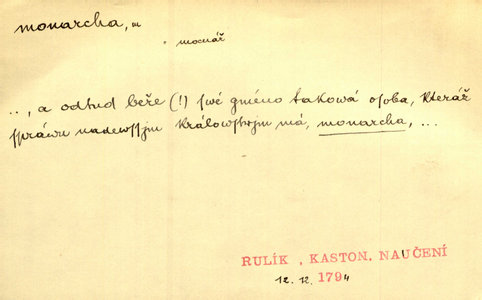 monarcha, m
mocnář
.., a odtud beře (!) swé gméno taková osoba, kteráž
spráwu nadewssjm králowstwjm má, monarcha, ...
RULÍK , KASTON. NAUČENÍ
12. 12. 1794